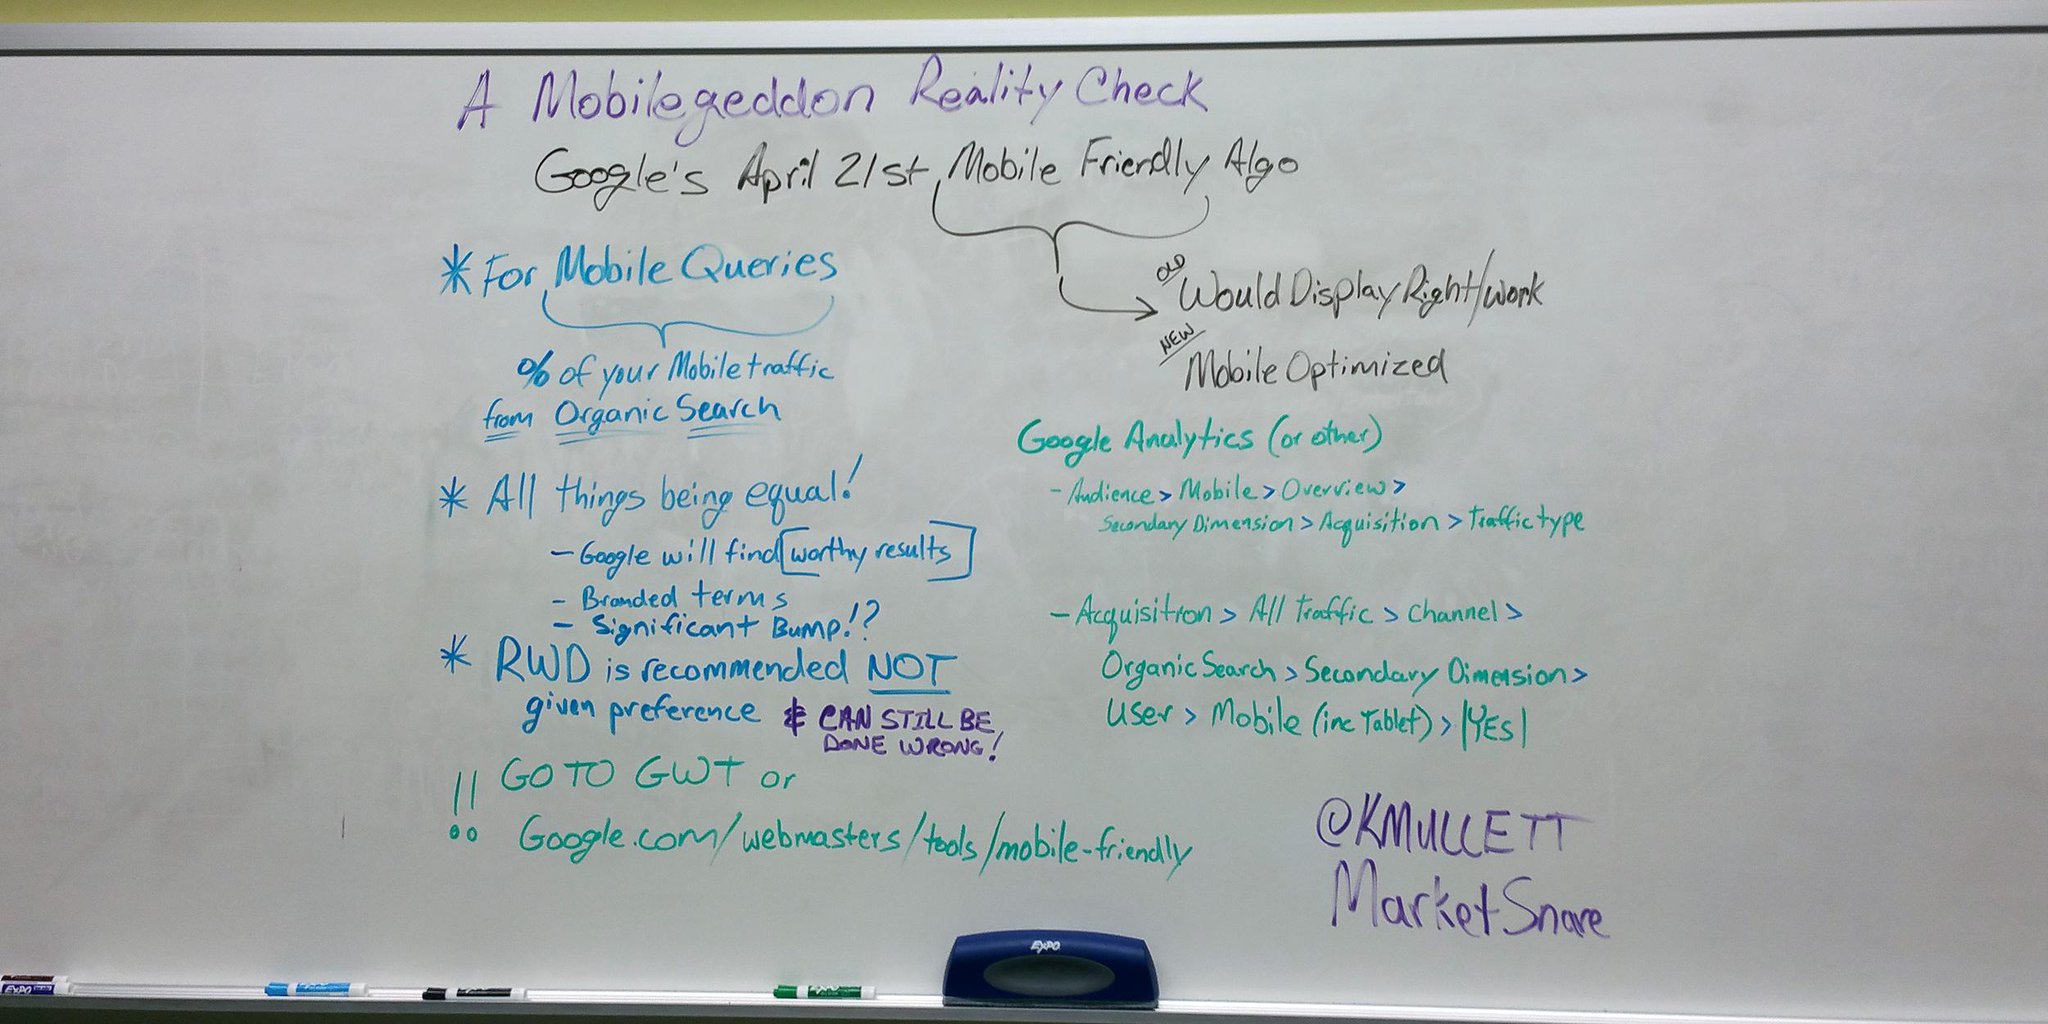 A Mobilegeddon Reality Check
Google's April 21st Mobile Friendly Algo
* For Mobile Queries
% of your Mobile traffic
from Organic Search
OLD Would Display Right/work
NEW
Mobile Optimized
* All things being equal!
- Google will find [worthy results]
- Branded terms
- Significant Bump!?
* RWD is recommended NOT
given preference & CAN STILL BE
DONE WRONG!
!! GO TO GWT or
Google.com/webmasters/tools/mobile-friendly
Google Analytics (or other)
- Audience > Mobile > Overview >
Secondary Dimension > Acquisition > Traffic type
- Acquisition > All Traffic > Channel >
Organic Search > Secondary Dimension >
User > Mobile (inc Tablet) > |YES|
@KMULLETT
MarketSnare
EXPO
EXPO